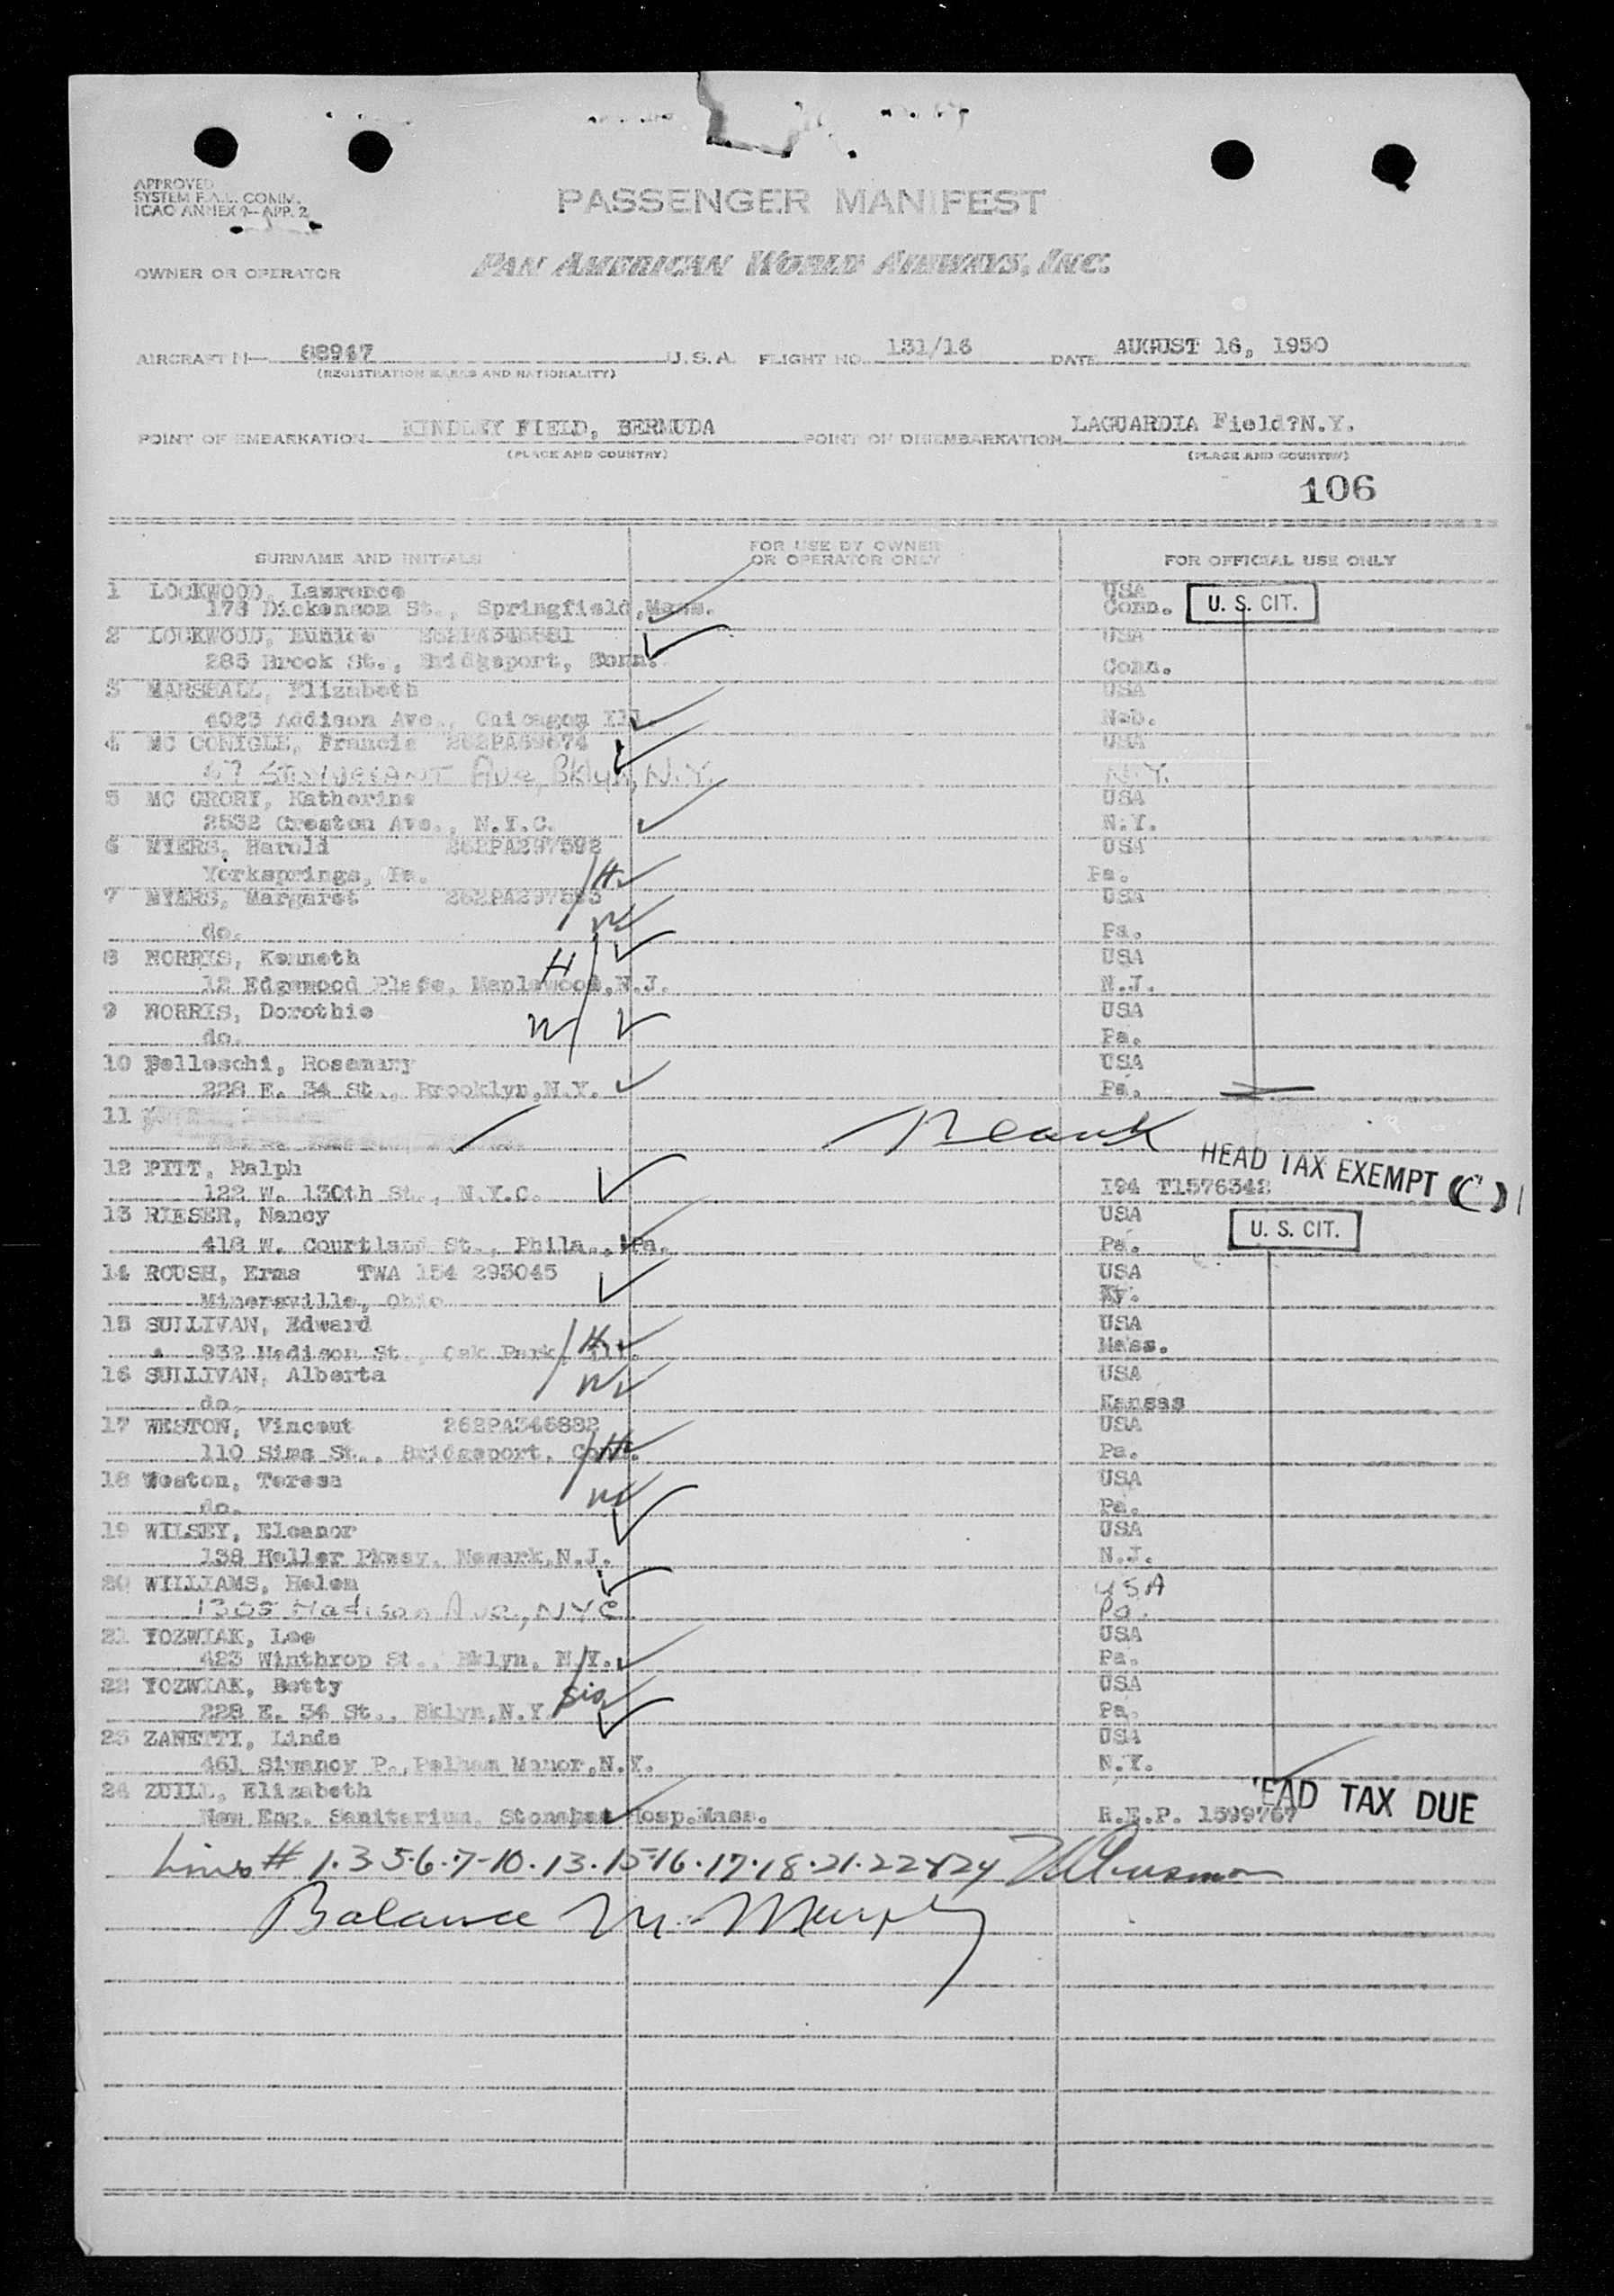 APPROVED
SYSTEM F.A.L. COMM.
ICAO ANNEX 9-APP. 2
PASSENGER MANIFEST
OWNER OR OPERATOR PAN AMERICAN WORLD AIRWAYS, INC.
AIRCRAFT N— 88947 U.S.A. FLIGHT NO. 131/16 DATE AUGUST 16, 1950
(REGISTRATION MARKS AND NATIONALITY)
POINT OF EMBARKATION KINDLEY FIELD, BERMUDA POINT OF DISEMBARKATION LAGUARDIA Field?N.Y.
(PLACE AND COUNTRY) (PLACE AND COUNTRY)
106
SURNAME AND INITIALS FOR USE BY OWNER OR OPERATOR ONLY FOR OFFICIAL USE ONLY
1 LOCKWOOD, Lawrence USA
173 Dickenson St., Springfield,Mass. Conn. U. S. CIT.
2 LOCKWOOD, Eunice 262PA346881 USA
285 Brook St., Bridgeport, Conn. Conn.
3 MARSHALL, Elizabeth USA
4023 Addison Ave., Chicagom Ill. Neb.
4 MC GONIGLE, Francis USA
Ave, Bklyn, N.Y. N.Y.
5 MC GRORY, Katherine USA
2532 Creston Ave., N.Y.C. N.Y.
6 MYERS, Harold 262PA297592 USA
Yorksprings, Pa. H. Pa.
7 MYERS, Margaret 262PA297593 USA
do. W Pa.
8 NORRIS, Kenneth H USA
12 Edgewood Place, Maplewood,N.J. N.J.
9 NORRIS, Dorothie W USA
do. Pa.
10 Pelleschi, Rosemary USA
228 E. 34 St., Brooklyn,N.Y. Pa.
11
HEAD TAX EXEMPT (C)
12 PITT, Ralph
122 W. 130th St., N.Y.C. I94 T1576342
13 RIESER, Nancy USA U. S. CIT.
418 W. Courtland St., Phila., Pa. Pa.
14 ROUSH, Erma TWA 154 293045 USA
Minersville, Ohio Ky.
15 SULLIVAN, Edward USA
932 Madison St., Oak Park, Ill. H Mass.
16 SULLIVAN, Alberta W USA
do. Kansas
17 WESTON, Vincent 262PA346882 USA
110 Sims St., Bridgeport, Conn. H Pa.
18 Weston, Teresa USA
do. W Pa.
19 WILSEY, Eleanor USA
138 Heller Pkway, Newark,N.J. N.J.
20 WILLIAMS, Helen USA
1305 Madison Ave., NYC Pa.
21 YOZWIAK, Leo USA
423 Winthrop St., Bklyn, N.Y. Pa.
22 YOZWIAK, Betty USA
228 E. 34 St., Bklyn,N.Y. Sis Pa.
23 ZANETTI, Linda USA
461 Siwanoy P.,Pelham Manor,N.Y. N.Y.
24 ZUILL, Elizabeth EAD TAX DUE
New Eng. Sanitarium, Stoneham Hosp.Mass. R.E.P. 1599767
Lines # 1.3.5.6.7-10.13.15-16.17.18.21.22&24
Balance M. Murphy